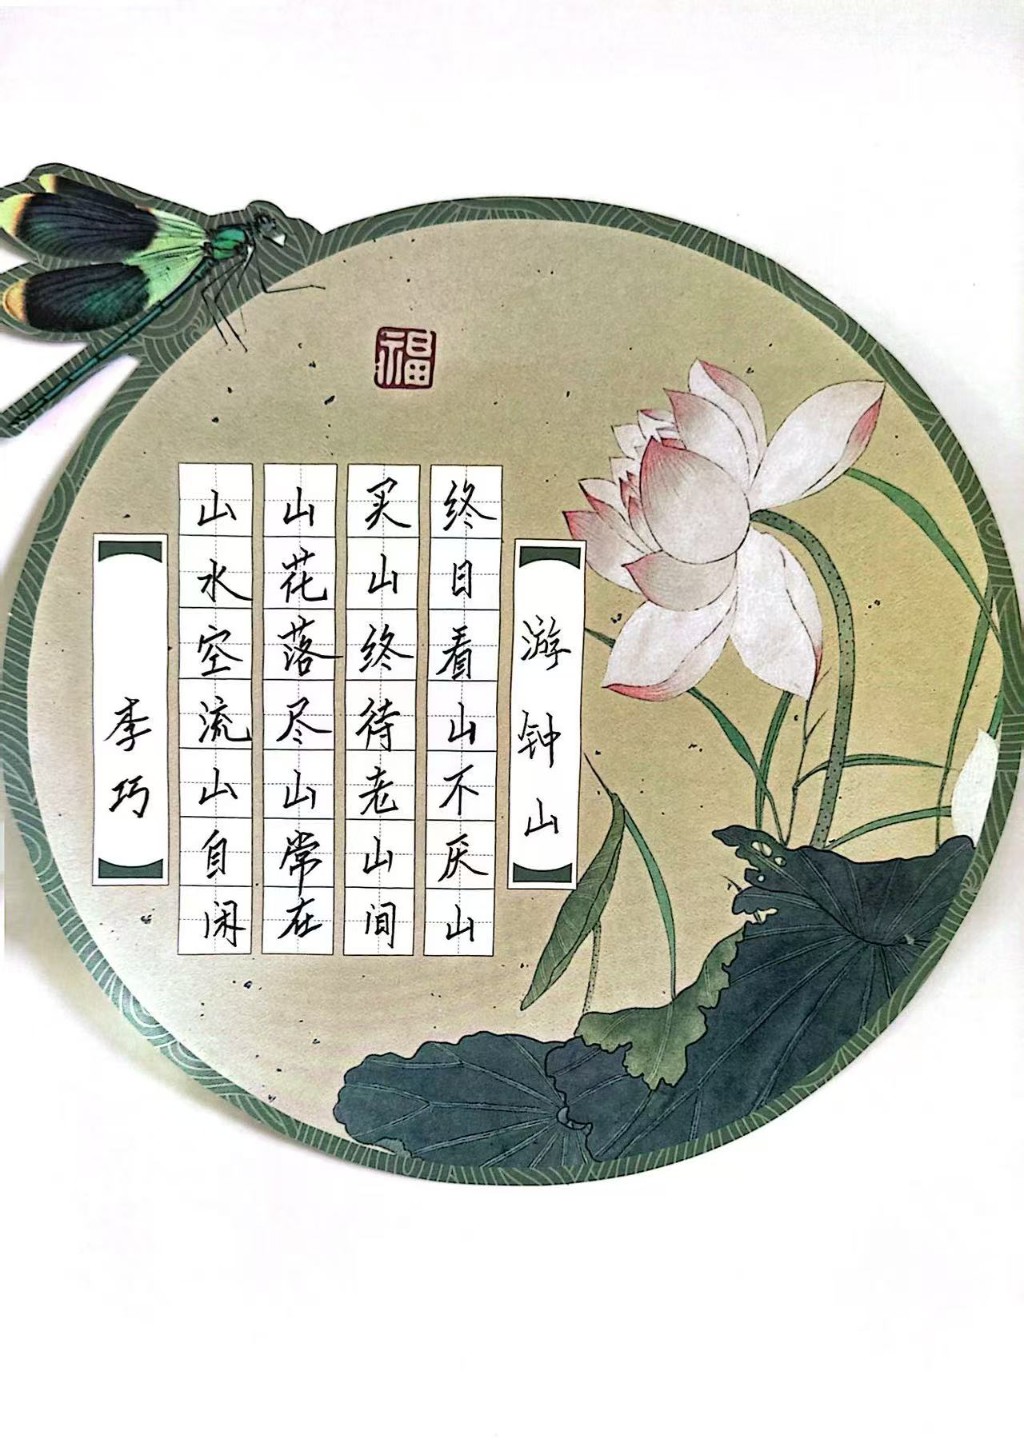 福
游钟山
终日看山不厌山
买山终待老山间
山花落尽山常在
山水空流山自闲
李巧